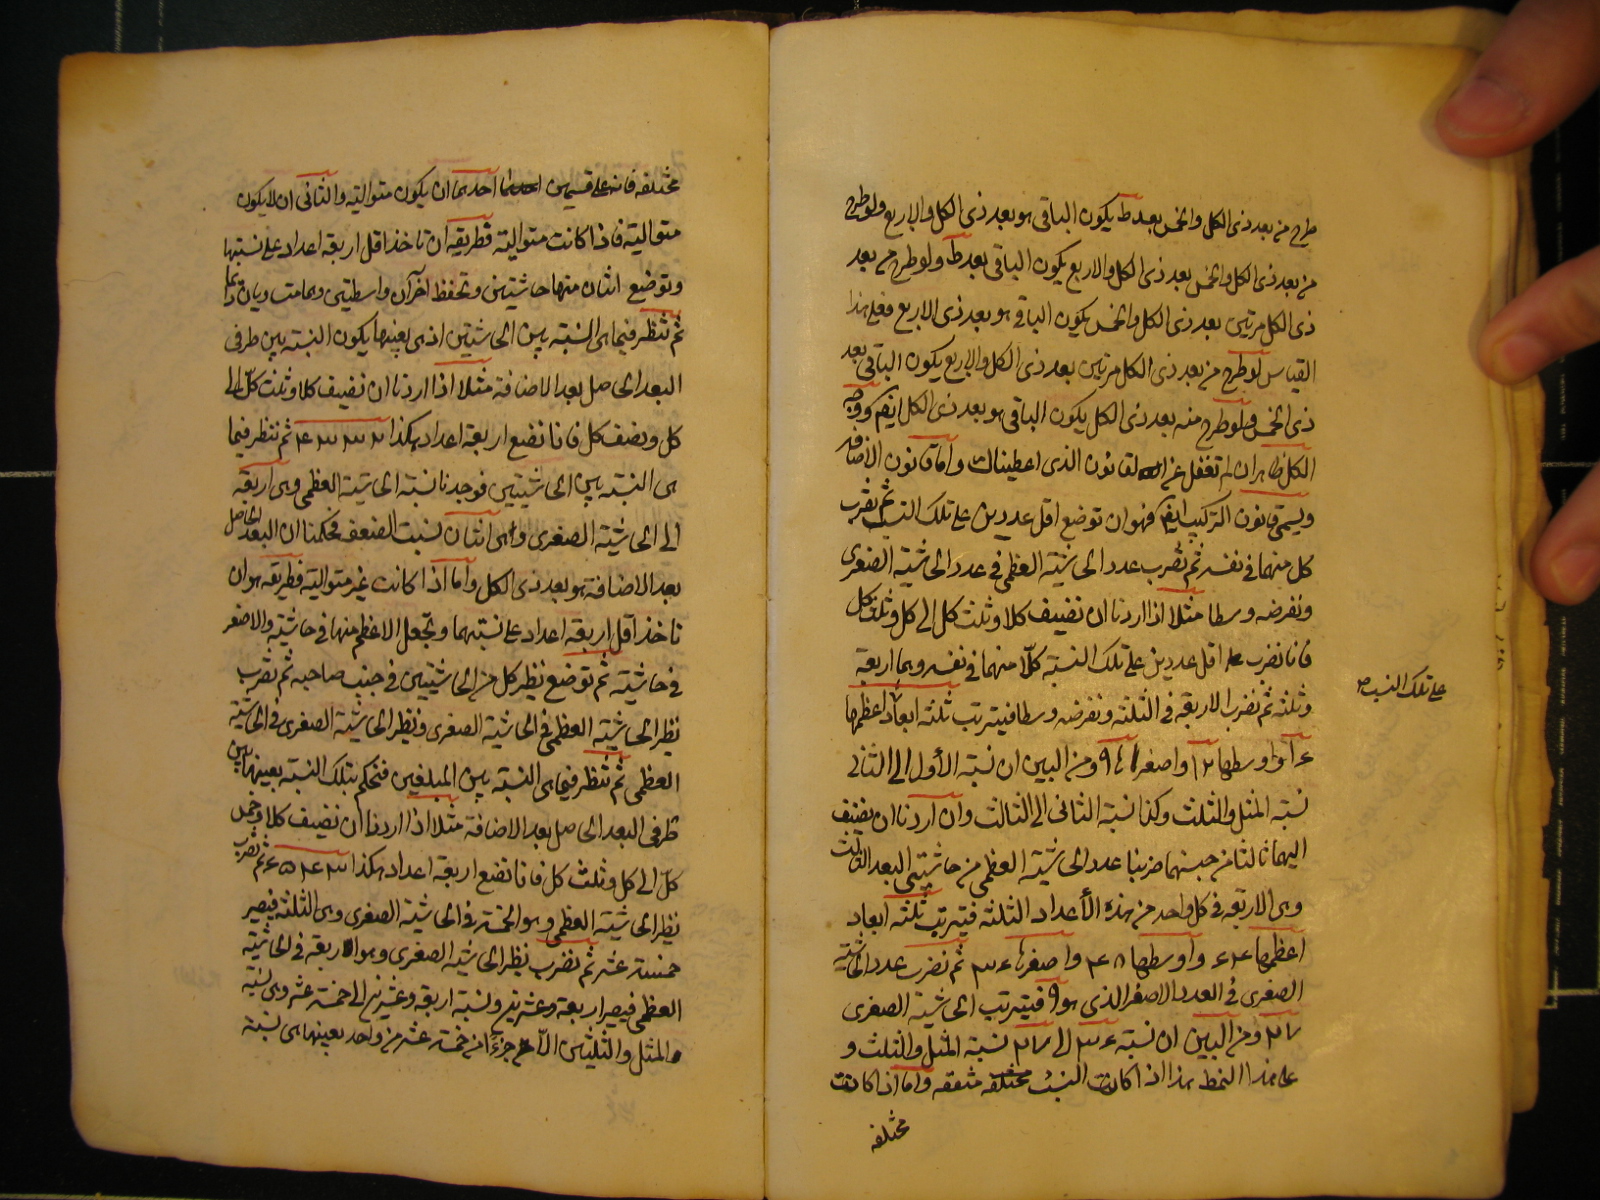 طرح من بعد ذى الكل والخمس بعد ط يكون الباقى هو بعد ذى الكل والاربع ولو طرح
من بعد ذى الكل والخمس بعد ذى الكل والاربع يكون الباقى بعد ط ولو طرح من بعد
ذى الكل مرتين بعد ذى الكل والخمس يكون الباقى هو بعد ذى الاربع فعلى هذا
القياس لو طرح من بعد ذى الكل مرتين بعد ذى الكل والاربع يكون الباقى بعد
ذى الخمس ولو طرح منه بعد ذى الكل يكون الباقى هو بعد ذى الكل ايضا ووجه
الكل ظاهر ان لم تغفل عن القانون الذى اعطيناك واما قانون الاضافة
ويسمى قانون التركيب ايضا فهو ان توضع اقل عددين على تلك النسب ثم تضرب
كل منهما فى نفسه ثم تضرب عدد الحاشية العظمى فى عدد الحاشية الصغرى
ونفرضه وسطا مثلا اذا اردنا ان نضيف كلا وثلث كل الى كل وثلث كل
فانا نضرب اقل عددين على تلك النسبة كلا منهما فى نفسه وهما اربعة
على تلك النسب
وثلثه ثم نضرب الاربعة فى الثلثة ونفرضه وسطا فيترتب ثلثة ابعاد اعظمها
١٦ واوسطها ١٢ واصغرها ٩ ومن البين ان نسبة الأول الى الثانى
نسبة المثل والثلث وكذا نسبة الثانى الى الثالث وان اردنا ان نضيف
اليها ثالثا من جنسها ضربنا عدد الحاشية العظمى من حاشيتى البعد الثالث
وهى الاربعة فى كل واحد من هذه الأعداد الثلثة فيترتب ثلثة ابعاد
اعظمها ٦٤ واوسطها ٤٨ واصغرها ٣٦ ثم نضرب عدد الحاشية
الصغرى فى العدد الاصغر الذى هو ٩ فيترتب الحاشية الصغرى
٢٧ ومن البين ان نسبة ٣٦ الى ٢٧ نسبة المثل والثلث و
على هذا النمط هذا اذا كانت النسب متفقة واما اذا كانت
مختلفه
مختلفه فانه على قسمين احدهما ان يكون متوالية والثانى ان لا يكون
متوالية فاذا كانت متوالية فطريقه ان تاخذ اقل اربعة اعداد على نسبتها
وتوضع اثنان منها حاشيتين وتحفظ آخران واسطتين
ثم تنظر فيما هى النسبة بين الحاشيتين اذ هى بعينها يكون النسبة بين طرفى
البعد الحاصل بعد الاضافة مثلا اذا اردنا ان نضيف كلا وثلث كل الى
كل ونصف كل فانا نضع اربعة اعداد هكذا ٢ ٣ ٣ ٤ ثم ننظر فيما
هى النسبة بين الحاشيتين فوجدنا نسبة الحاشية العظمى وهى اربعة
الى الحاشية الصغرى وهى اثنان نسبت الضعف فحكمنا ان البعد الحاصل
بعد الاضافة هو بعد ذى الكل واما اذا كانت غير متوالية فطريقه هو ان
تاخذ اقل اربعة اعداد على نسبتهما وتجعل الاعظم منها فى حاشية والاصغر
فى حاشية ثم توضع نظير كل من الحاشيتين فى جنب صاحبه ثم تضرب
نظير الحاشية العظمى فى الحاشية الصغرى ونظير الحاشية الصغرى فى الحاشية
العظمى ثم تنظر فيما هى النسبة بين المبلغين فتحكم بتلك النسبة بعينها بين
طرفى البعد الحاصل بعد الاضافة مثلا اذا اردنا ان نضيف كلا وخمس
كل الى كل وثلث كل فانا نضع اربعة اعداد هكذا ٣ ٤ ٥ ٦ ثم نضرب
نظير الحاشية العظمى وهو الخمسة فى الحاشية الصغرى وهى الثلثة فيصير
خمسة عشر ثم نضرب نظير الحاشية الصغرى وهو اربعة فى الحاشية
العظمى فيصير اربعة وعشرين ونسبة اربعة وعشرين الى خمسة عشر وهى نسبة
المثل والثلثين الا جزءا من خمسة عشر من واحد بعينها هى نسبة